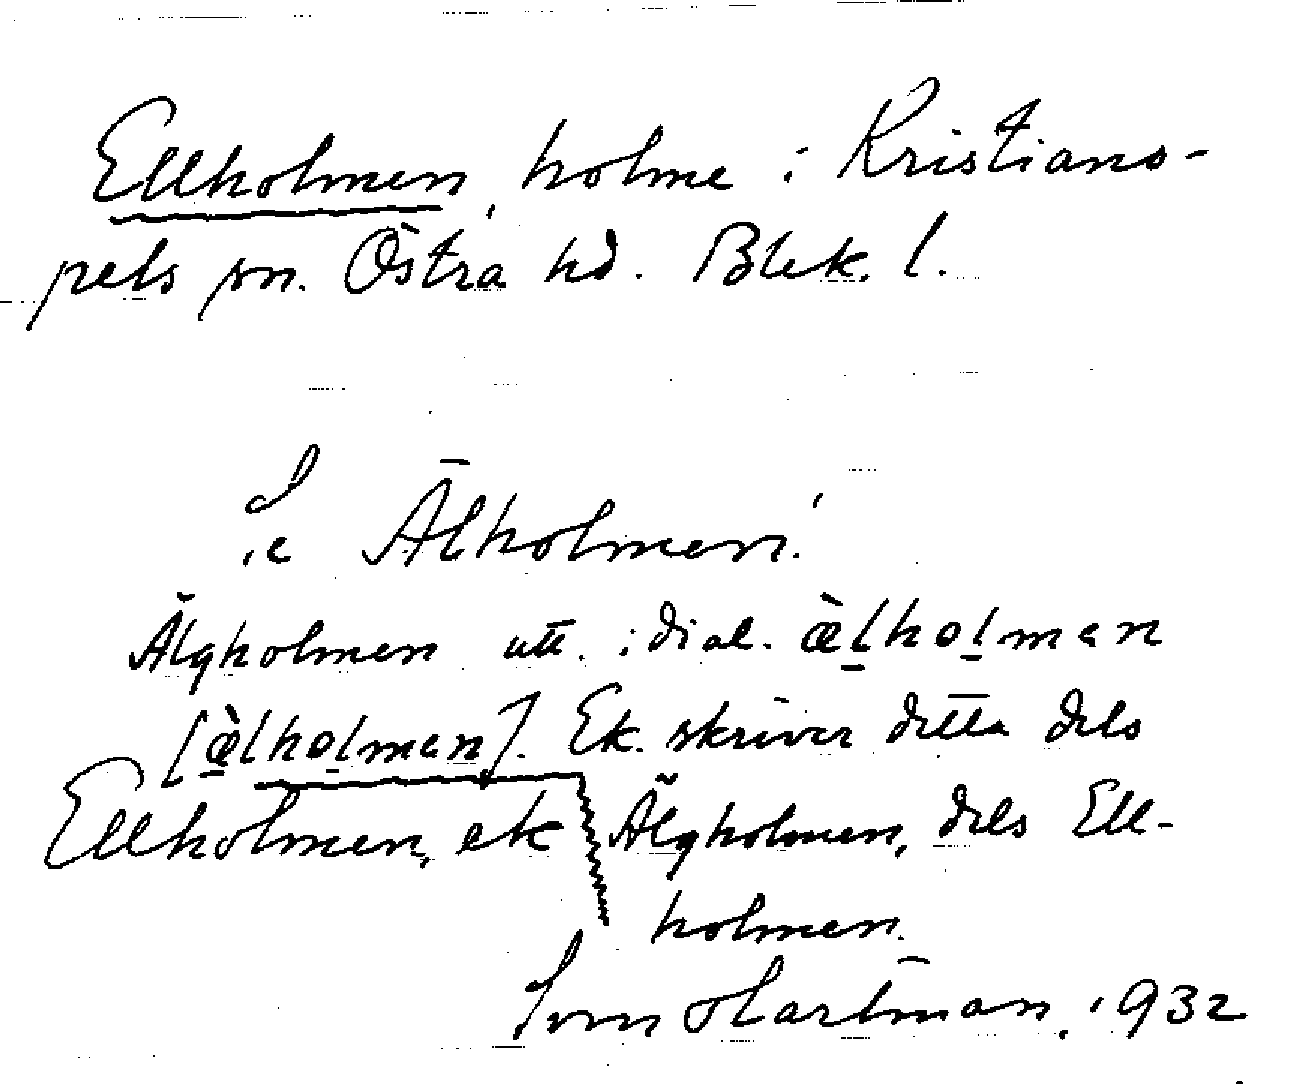 Ellholmen, holme i Kristiano-
pels sn. Östra hd. Blek. l.
Se Älholmen!
Älgholmen utt. i dial. æ̀lholmen
[æ̀lholmen]. Ek. skriver detta dels
Ellholmen, ek Älgholmen, dels Ell-
holmen.
Sven Hartman, 1932